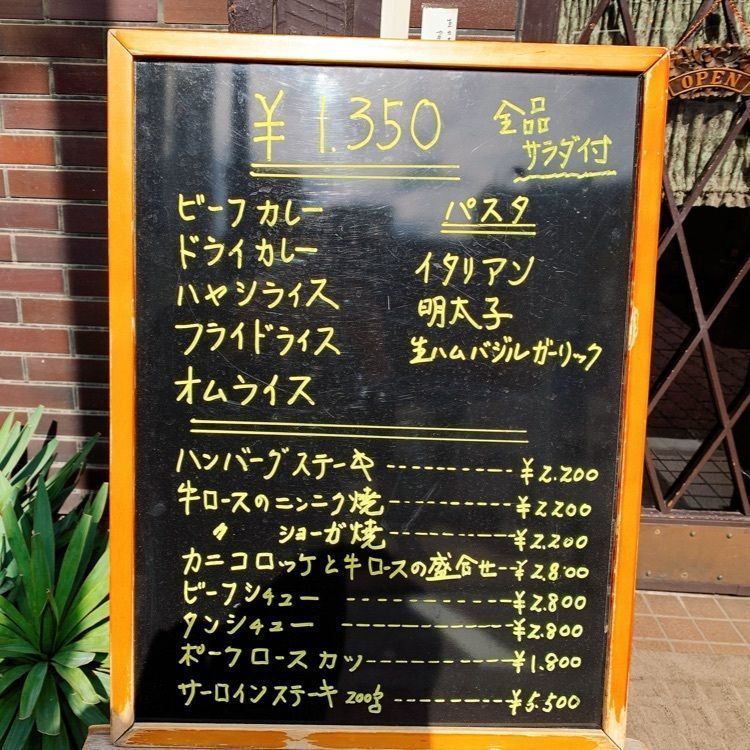 ¥1.350
全品
サラダ付
ビーフカレー
ドライカレー
ハヤシライス
フライドライス
オムライス
パスタ
イタリアン
明太子
生ハムバジルガーリック
ハンバーグステーキ----------¥2.200
牛ロースのニンニク焼----------¥2200
〃 ショーガ焼----------¥2.200
カニコロッケと牛ロースの盛合せ--¥2.800
ビーフシチュー----------¥2.800
タンシチュー----------¥2.800
ポークロースカツ----------¥1.800
サーロインステーキ200g----------¥5.500
OPEN